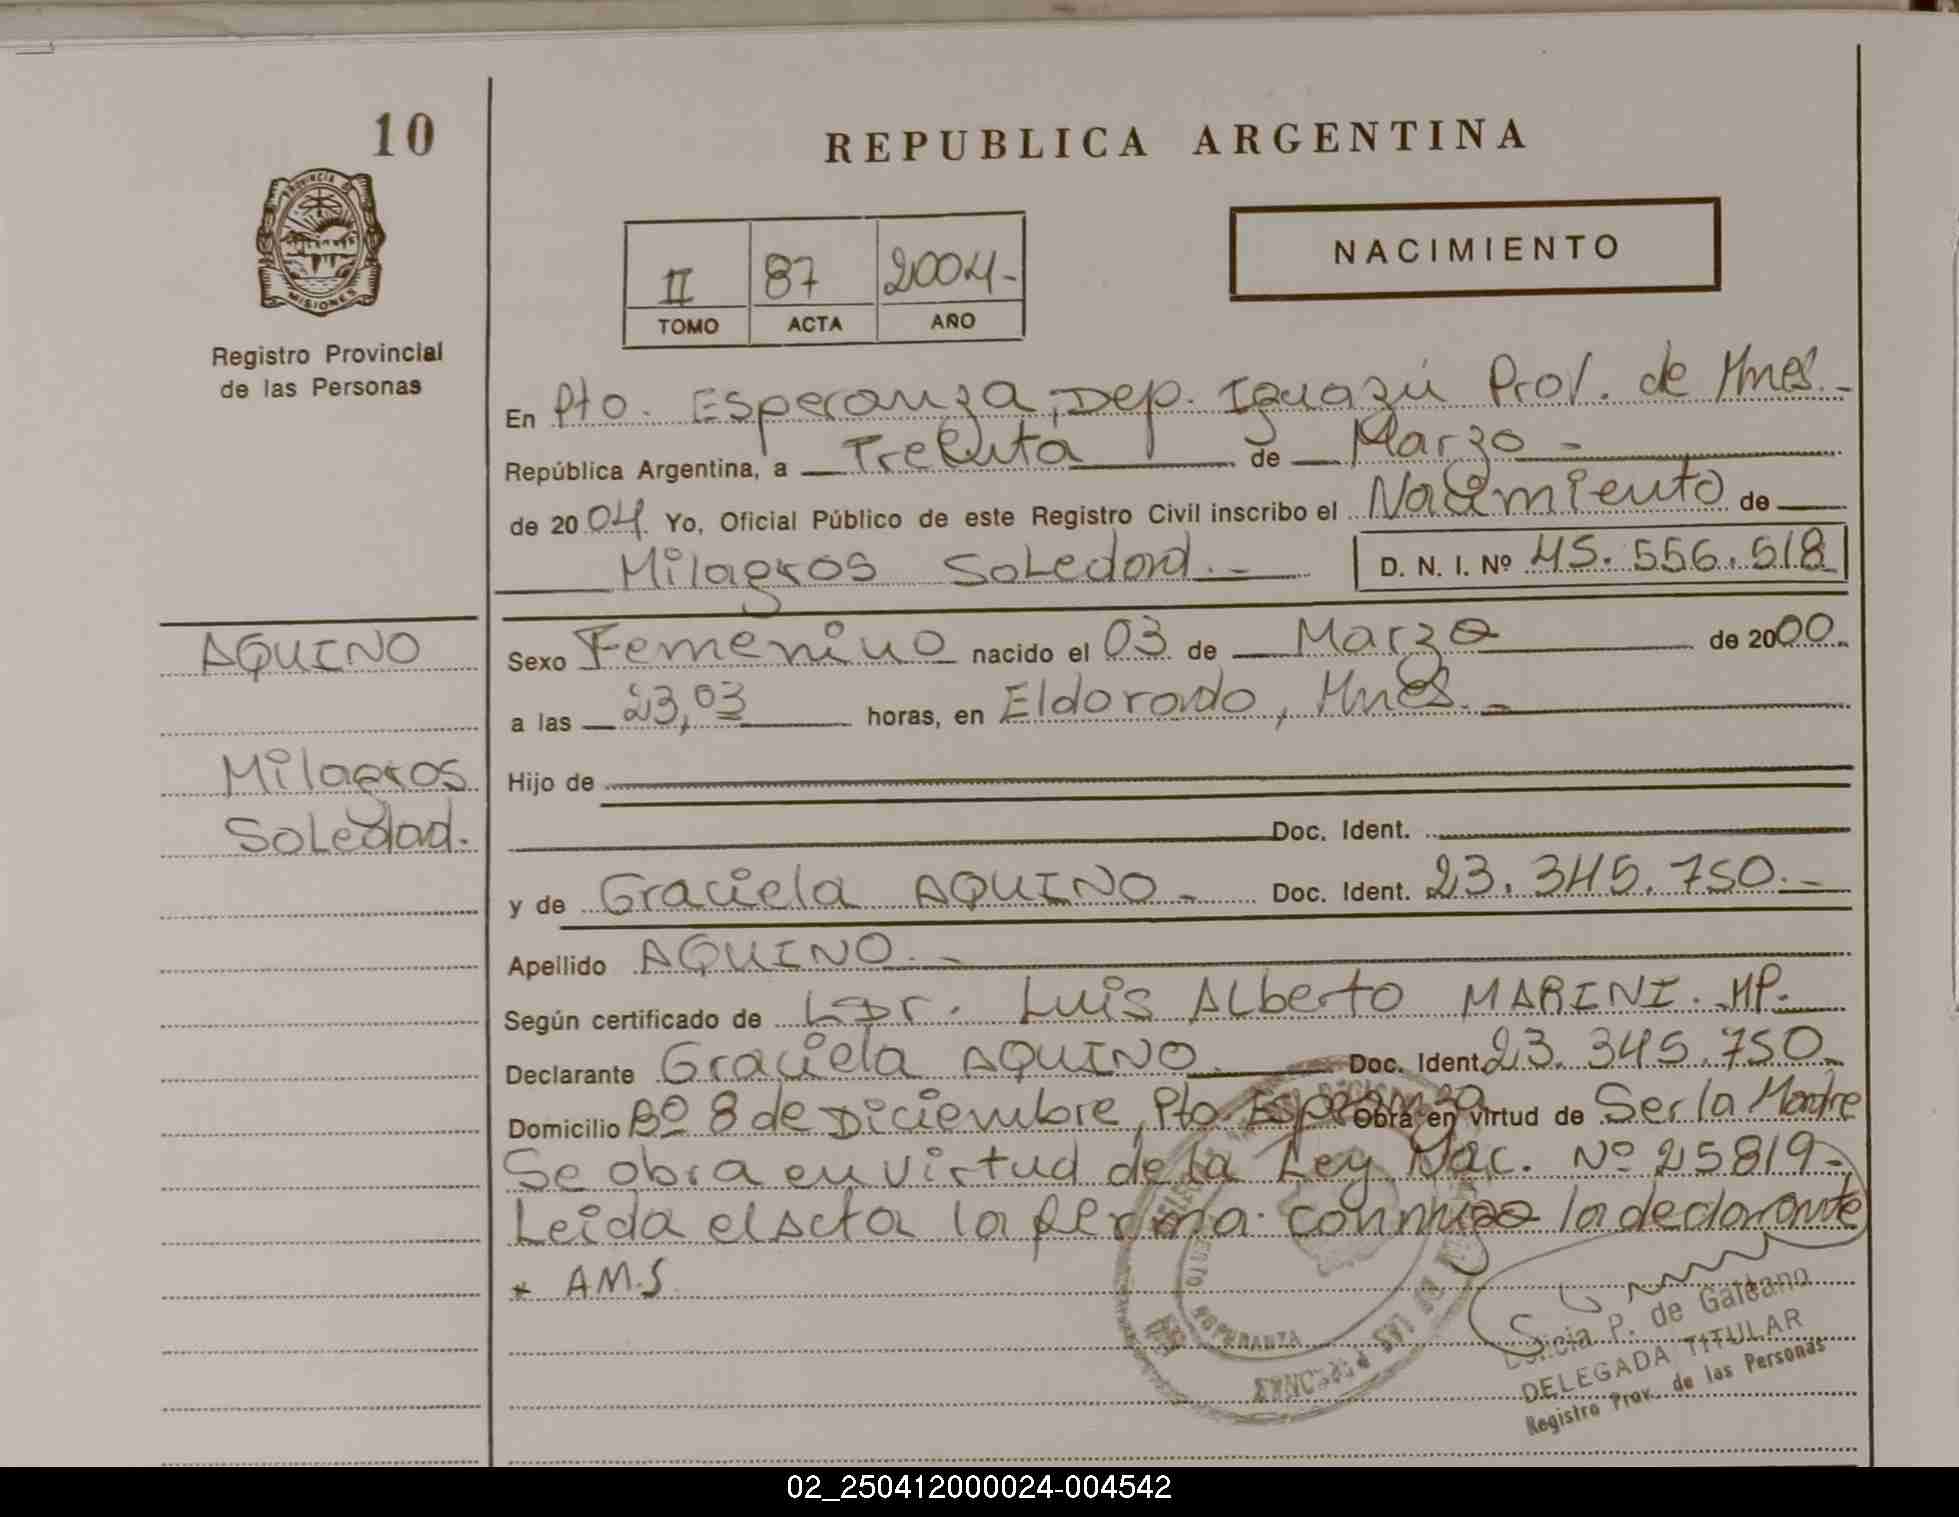 10
REPUBLICA ARGENTINA
PROVINCIA DE
MISIONES
Registro Provincial
de las Personas
NACIMIENTO
II 87 2004-
TOMO ACTA AÑO
En Pto. Esperanza, Dep. Iguazú Prov. de Mnes.-
República Argentina, a Treinta de Marzo -
de 2004. Yo, Oficial Público de este Registro Civil inscribo el Nacimiento de
Milagros Soledad.- D. N. I. Nº 45.556.518
AQUINO
Milagros
Soledad.
Sexo Femenino nacido el 03 de Marzo de 2000
a las 23,03 horas, en Eldorado, Mnes.-
Hijo de
Doc. Ident.
y de Graciela AQUINO.- Doc. Ident. 23.345.750.-
Apellido AQUINO.-
Según certificado de Dr. Luis Alberto MARINI. MP.
Declarante Graciela AQUINO Doc. Ident. 23.345.750
Domicilio Bº 8 de Diciembre, Pto Esperanza Obra en virtud de Ser la Madre
Se obra en virtud de la Ley Nac. Nº 25819-
Leida el Acta la firma conmigo la declarante
* AM.S.
ESPERANZA
DE LAS PERSONAS
P. de Galeano
DELEGADA TITULAR
Registro Prov. de las Personas
02_250412000024-004542